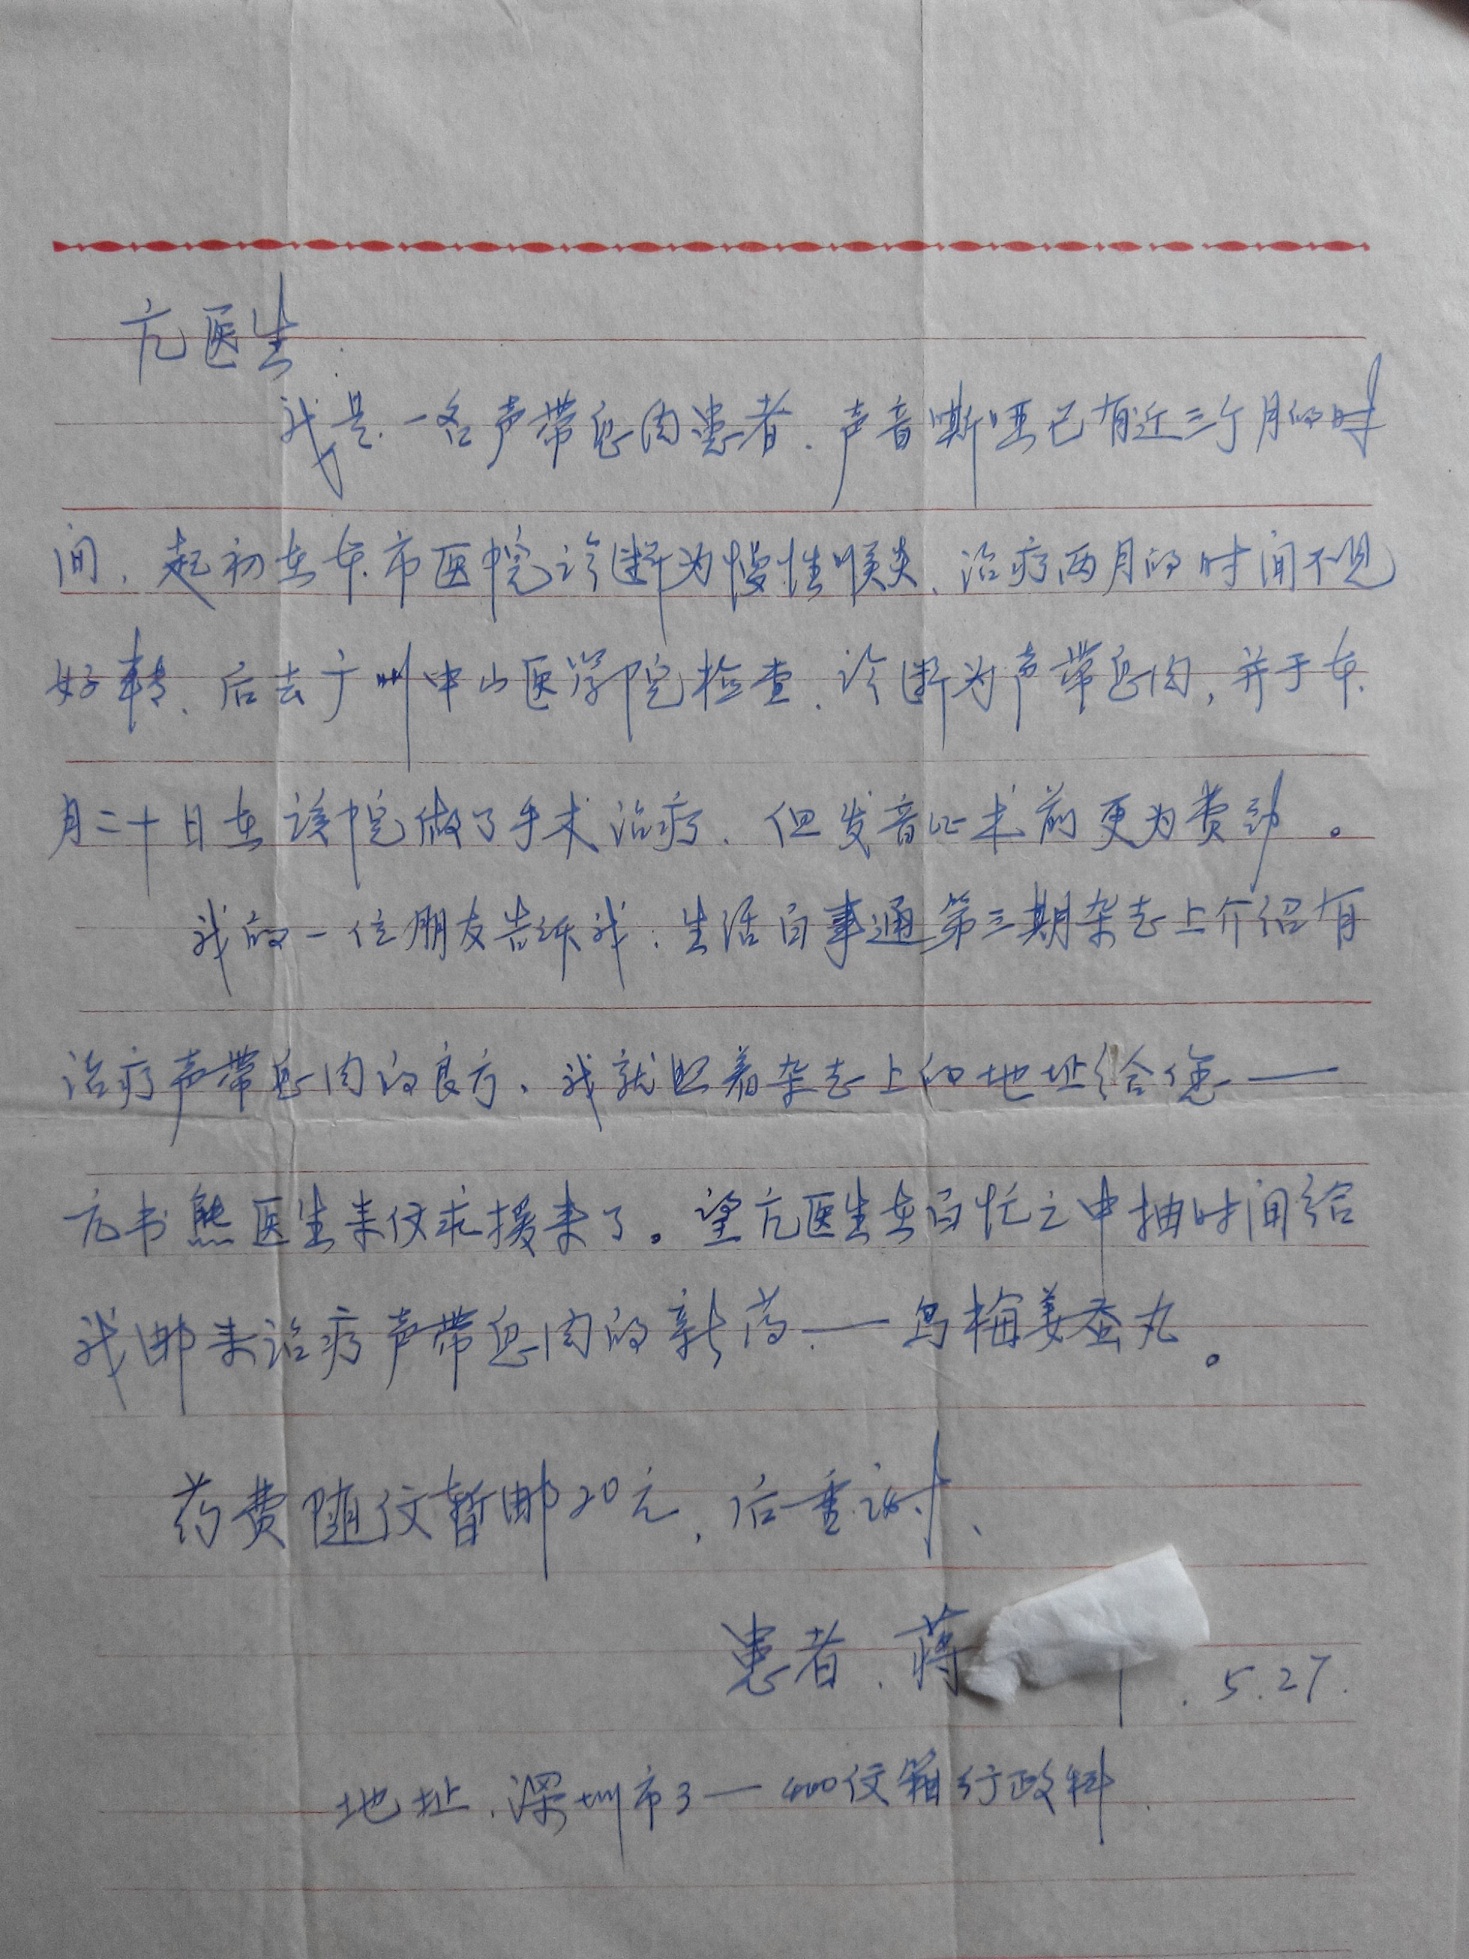 亢医生
我是一名声带息肉患者、声音嘶哑已有近三个月的时
间、起初在本市医院诊断为慢性喉炎、治疗两月的时间不见
好转、后去广州中山医学院检查、诊断为声带息肉,并于本
月二十日在该院做了手术治疗、但发音比术前更为费劲。
我的一位朋友告诉我:生活百事通第三期杂志上介绍有
治疗声带息肉的良方、我就照着杂志上的地址给您——
亢书熊医生来信求援来了。望亢医生在百忙之中抽时间给
我邮来治疗声带息肉的新药——乌梅姜蚕丸。
药费随信暂邮20元、后重谢、
患者、蒋 5.27.
地址、深圳市3—400信箱行政科.